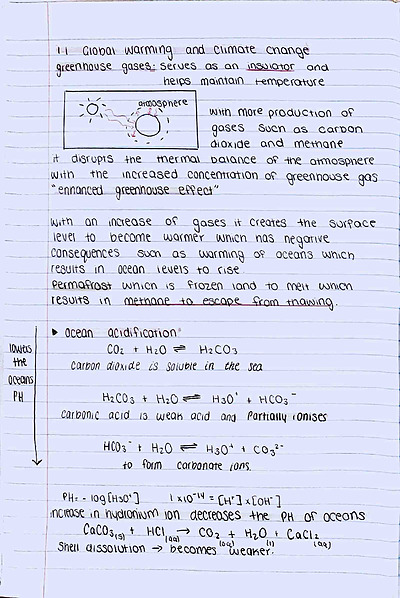 1.1 Global warming and climate change
greenhouse gases: serves as an insulator and
helps maintain temperature
atmosphere
with more production of
gases such as carbon
dioxide and methane
it disrupts the thermal balance of the atmosphere
with the increased concentration of greenhouse gas
"enhanced greenhouse effect"
with an increase of gases it creates the surface
level to become warmer which has negative
consequences such as warming of oceans which
results in ocean levels to rise
Permafrost which is frozen land to melt which
results in methane to escape from thawing.
▸ Ocean acidification:
CO₂ + H₂O ⇌ H₂CO₃
carbon dioxide is soluble in the sea
lowers
the
oceans
PH
H₂CO₃ + H₂O ⇌ H₃O⁺ + HCO₃⁻
carbonic acid is weak acid and partially ionises
HCO₃⁻ + H₂O ⇌ H₃O⁺ + CO₃²⁻
to form carbonate ions.
PH = - log[H3O⁺] 1 x10⁻¹⁴ = [H⁺] x [OH⁻]
increase in hydronium ion decreases the PH of oceans
CaCO₃(s) + HCl(aq) → CO₂ + H₂O(l) + CaCl₂(aq)
Shell dissolution → becomes weaker.